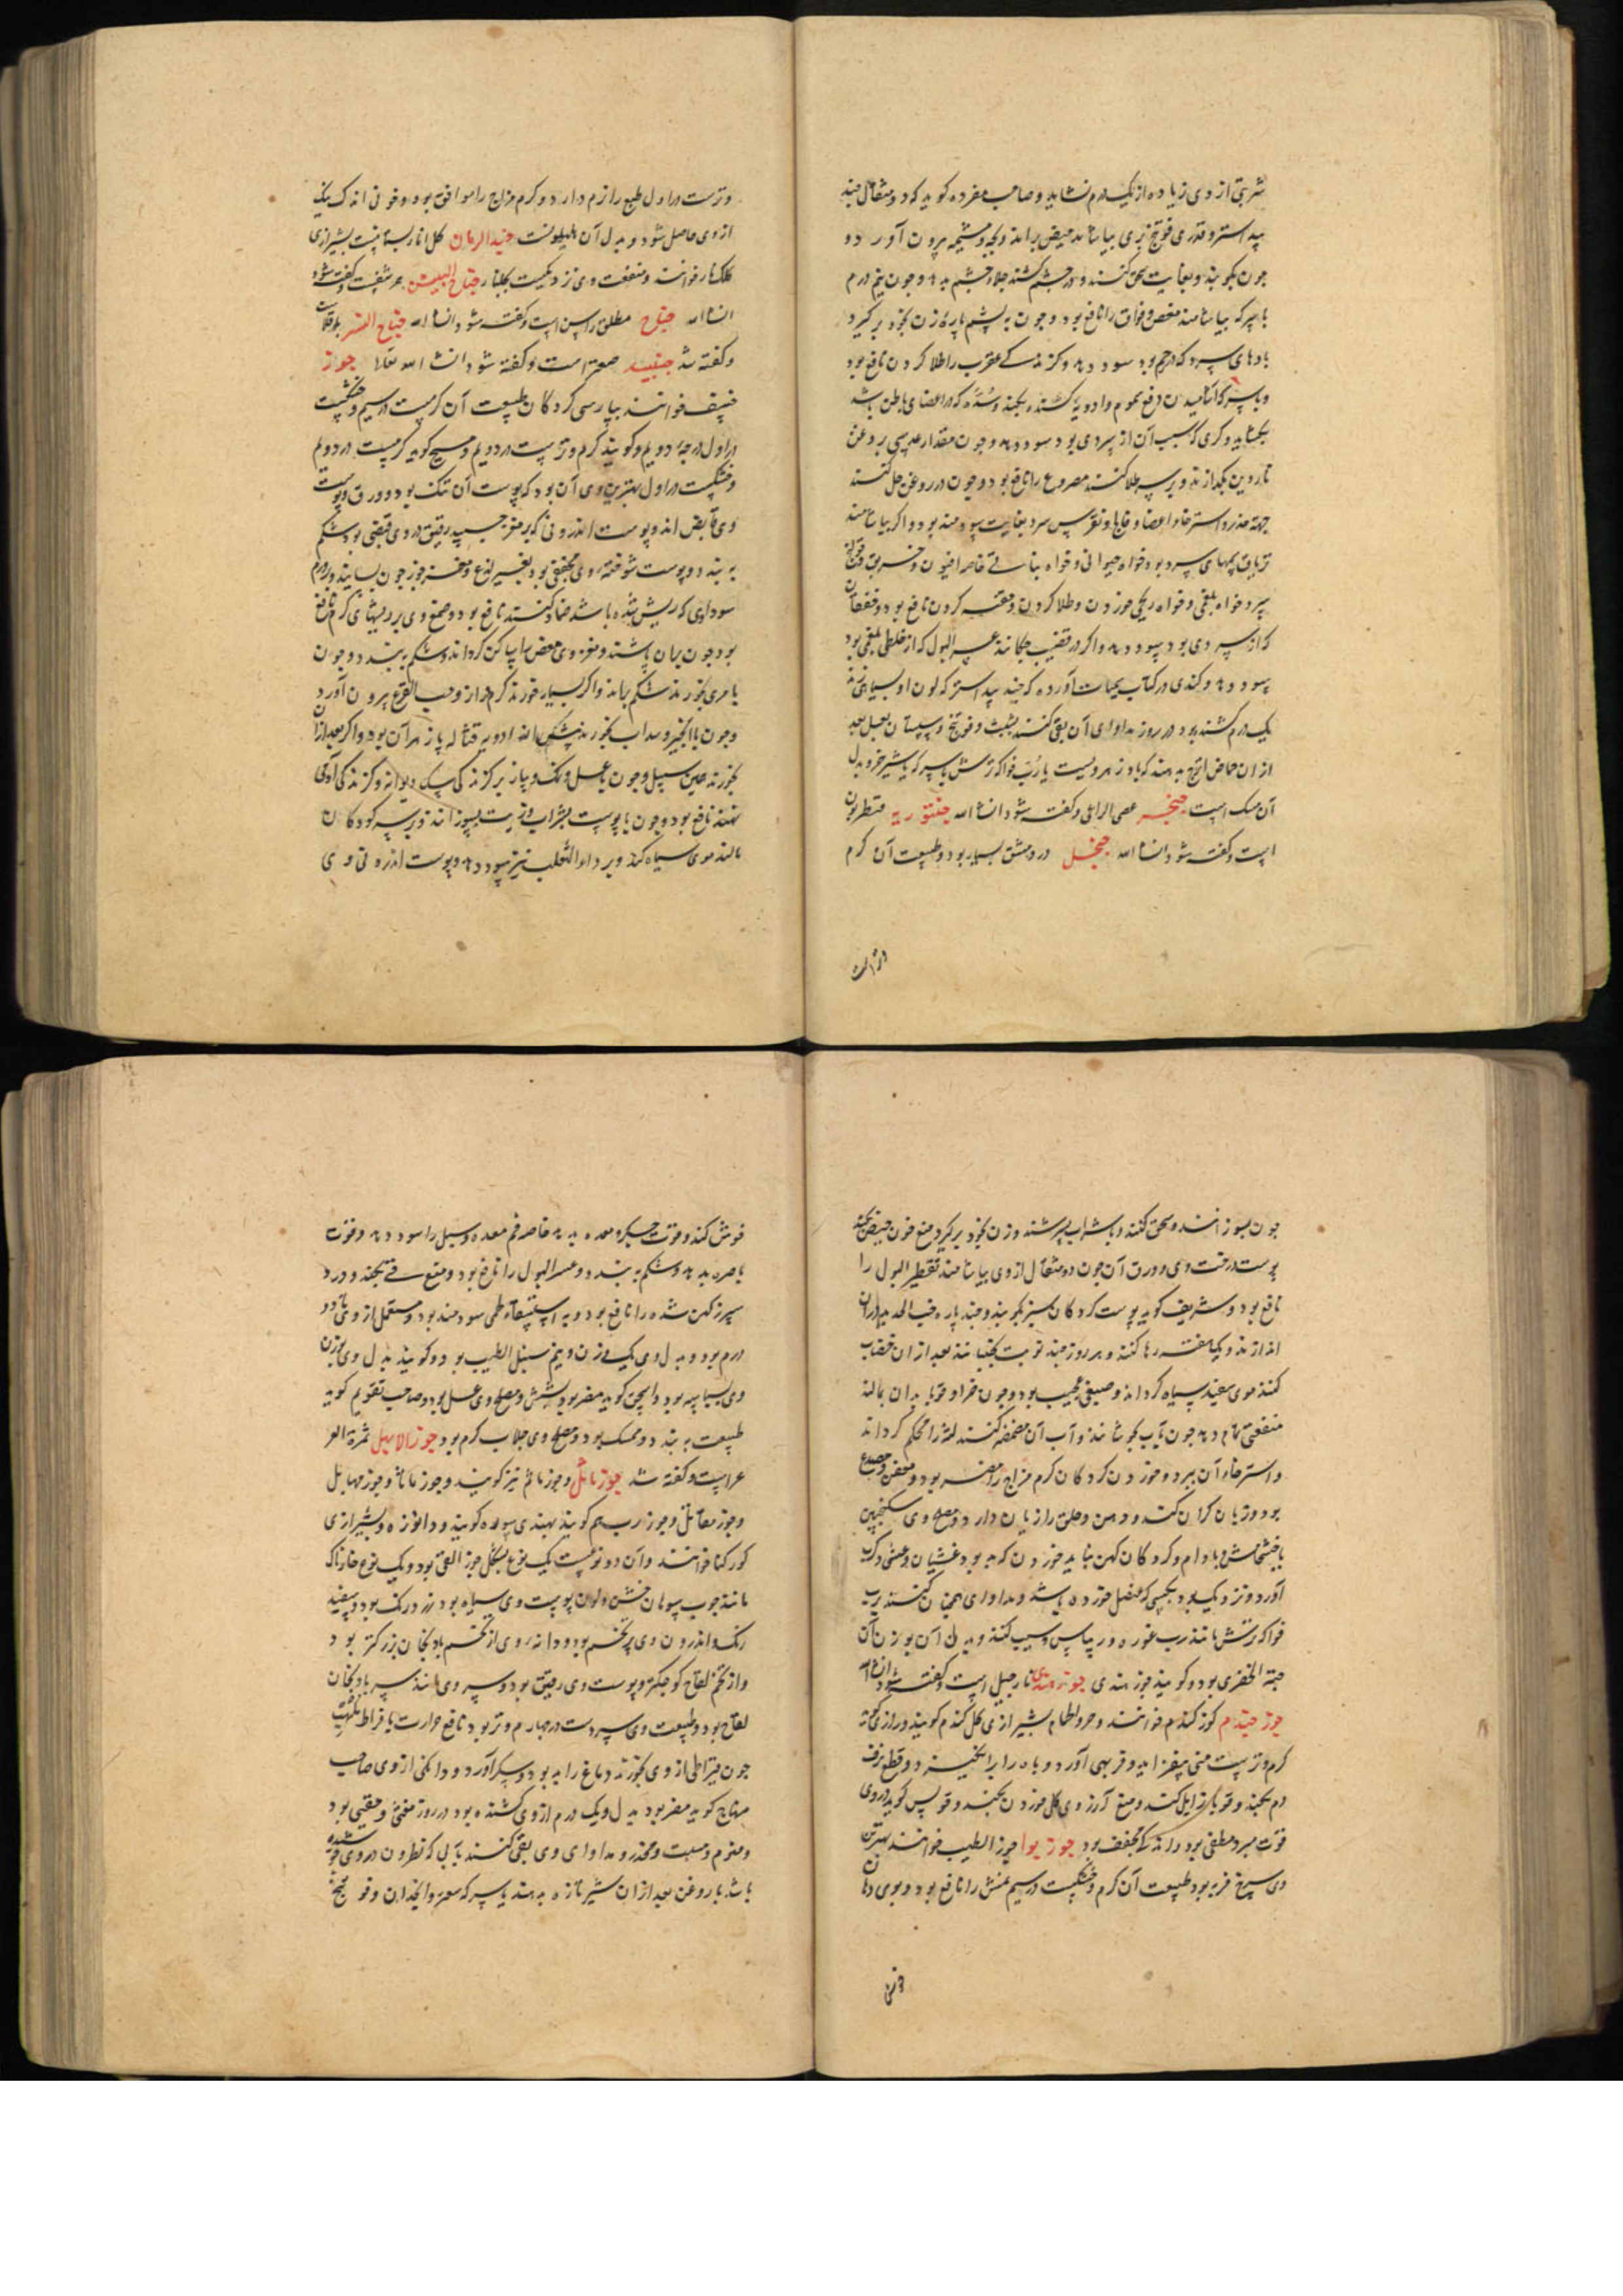 شربتی از وی زیاده از یک درم نشاید و صاحب مفرده کوید که دو مثقال جند
بید استر و قدری فوتنج بری بیاشامند حیض براند و بچه و مشیمه بیرون آورد و
چون بکوبند و بغایت سحق کنند و در چشم کشند جلاء چشم بدهد و چون نیم درم
با سرکه بیاشامند مغص و فواق را نافع بود و چون به پشم پاره زن بخود برکیرد
بادهای سرد که در رحم بود سود دهد و کزندکی عقرب را طلا کردن نافع بود
و با سرکه آشامیدن دفع سموم و ادویه کشنده بکند و سده که در اعضای باطن باشد
بکشاید و کری که سبب آن از سردی بود سود دهد و چون مقدار عدسی بروغن
ناردین بکدازند و بر سر طلا کنند مصروع را نافع بود و چون در روغن حل کنند
جهة خدر و استرخاء اعضا و فالج و نقرس سرد بغایت سودمند بود و اکر بیاشامند
تریاق سمهای سرد بود خواه حیوانی و خواه نباتی خاصه افیون و خربق
سرد خواه بلغمی و خواه ریحی خوردن و طلا کردن و حقنه کردن نافع بود و خفقان
که از سردی بود سود دهد و اکر در قضیب چکانند عسر البول که از خلطی بلغمی بود
سود دهد و کندی در کتاب سمیات آورده که جند بید استر که لون او بسیاهی زند
یک درم کشنده بود در روز مداوای آن بقی کنند بشبث و فوتنج و سپستان بعسل بعد
از ان حماض اترج بدهند که بادزهر ویست یا رب فواکه ترش یا سرکه یا شیر خر و بدل
آن مسک است جنجر عصی الراعی و کفته شود انشاالله جنتوریه قنطریون
است و کفته شود انشاالله جنجل در دمشق بسیار بود و طبیعت آن کرم
و تر است
و ترست در اول طبع را نرم دارد و کرم مزاج را موافق بود و خونی اندک نیک
از وی حاصل شود و بدل آن هلیونست جنبد الرمان کل انار بستانیست بشیرازی
کلک انار خوانند و منفعت وی نزدیکست بکلنار جناح البیت حرشفست و کفته شود
انشاالله جناح مطلق راسن است و کفته شود انشاالله جناح النسر
و کفته شد جنبید صعتر است و کفته شود انشا الله تعالی جوز
خسیف خوانند بپارسی کردکان طبیعت آن کرمست در سیم و خشکیست
در اول درجه دویم و کویند کرم و ترست در دویم و مسیح کوید کرمست در دویم
و خشکیست در اول بهترین وی آن بود که پوست آن تنک بود و ورق و پوست
وی قابض اند و پوست اندرونی که بر مغز چسبد رقیق در وی قبضی بود شکم
به بندد و پوست سوخته وی مجففی بود بغیر لذع و مغز جوز چون بسایند و بر ورم
سوداوی که ریش شده باشد ضماد کنند نافع بود و صمغ وی بر ریشهای کرم نافع
بود چون بران پاشند و مغز وی مغص را ساکن کرداند و شکم به بندد و چون
با مری بخورند شکم براند و اکر بسیار خورند کرم دراز و حب القرع بیرون آورد
و چون با انجیر و سداب بخورند پیش از ادویه قتاله پازهر آن بود و اکر بعد از آن
بخورند همین سبیل و چون با عسل و نمک و پیاز بر کزندکی سک دیوانه و کزندکی آدمی
نهند نافع بود و چون با پوست بشراب و زیت بسوزانند و بر سر کودکان
مالند موی سیاه کند و بر داء الثعلب نیز سود دهد و پوست اندرونی وی
چون بسوزانند و سحق کنند و با شراب بسرشند و زن بخود برکیرد منع خون حیض بکند
پوست درخت وی و ورق آن چون دو مثقال از وی بیاشامند تقطیر البول را
نافع بود و شریف کوید پوست کردکان سبز بکوبند و چند پاره خبث الحدید در آن
اندازند و یک هفته رها کنند و هر روز چند نوبت بجنبانند بعد از ان خضاب
کنند موی سفید سیاه کرداند و صبغی عجیب بود و چون خراز و قوبا بدان بمالند
منفعتی تمام دهد چون بآب بجوشانند و آب آن مضمضه کنند لثه را محکم کرداند
و استرخاء آن ببرد و خوردن کردکان کرم مزاج را مضر بود و معفن و مصدع
بود و زبان کران کند و دهن و حلق را زیان دارد و مصلح وی سکنجبین
با خشخاش و بادام و کردکان کهن نباید خوردن که بد بود غشیان و عشی و کرب
آورد و نزدیک بود بکسی که عنصل خورده باشد و مداوای همچنان کنند برب
فواکه ترش مانند رب غوره و ریباس و سیب کنند و بدل آن بوزن آن
حبة الخضری بود و کویند جوز هندی جوز هندی نارجیل است و کفته شود انشاالله
جوز جندم کوز کندم خوانند و خرو الحمام بشیرازی کل کندم کویند و رازی کوید
کرم و ترست منی بیفزاید و فربهی آورد و باه را برانکیزد و قطع نزف
دم بکند و قوبا زایل کند و منع آرزوی کل خوردن بکند و فولس کوید در وی
قوت مبرد مطفی بود و اندکی مجفف بود جوز بوا جوز الطیب خوانند بهترین
وی سرخ فربه بود طبیعت آن کرم و خشکست در سیم نمش را نافع بود و بوی دهان
خوش کند
خوش کند و قوت جکر و معده بدهد خاصه فم معده و سبل را سود دهد و قوت
باصره بدهد و شکم به بندد و عسر البول را نافع بود و منع قی بکند و درد
سپرز کهن شده را نافع بود و به استسقاء لحمی سودمند بود و مستعمل از وی تا دو
درم بود و بدل وی یک وزن و نیم سنبل الطیب بود و کویند بدل وی بوزن
وی بسباسه بود و اسحق کوید مضر بود بشش و مصلح وی عسل بود و صاحب تقویم کوید
طبیعت به بندد و ممسک بود و مصلح وی جلاب کرم بود جوز الابهل ثمرة العر
عر است و کفته شد جوز ماثل و جوز ماثم نیز کویند و جوز ماثا و جوز مهاتل
و جوز مقاتل و جوز رب هم کویند بهندی دهتوره کویند و داتوره و بشیرازی
کورکنا خوانند و آن دو نوعست یک نوع بشکل جوز القی بود و یک نوع خارناک
مانند جوب سوهان خشن و لون پوست وی سیاه بود و زرد رنک بود و سفید
رنک و اندرون وی پر تخم بود و دانه وی از تخم بادنجان بزرکتر بود
و از تخم لفاح کوچکتر و پوست وی رقیق بود و سر وی مانند سر بادنجان
لفاح بود و طبیعت وی سردست در چهارم و تر بود نافع حرارت با فراط
چون قیراطی از وی بخورند دماغ را بد بود و سکر آورد و دانکی از وی صاحب
منهاج کوید مضر بود بدل و یک درم از وی کشنده بود در روز مغثی و مقیی بود
و منوم و مسبت و مخدر و مداوای وی بقی کنند بآبی که نطرون در وی
باشد با روغن بعد از ان شیر تازه بدهند یا سرکه صعتر و انجدان و فوتنج